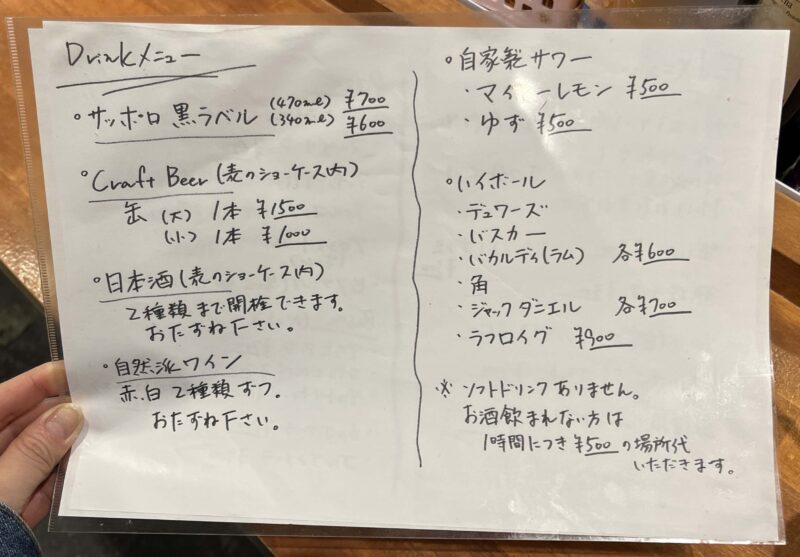 Drinkメニュー
サッポロ 黒ラベル (470ml) ¥700
(340ml) ¥600
Craft Beer (表のショーケース内)
缶 (大) 1本 ¥1500
(小) 1本 ¥1000
日本酒 (表のショーケース内)
2種類まで開栓できます。
おたずね下さい。
自然派ワイン
赤、白 2種類ずつ。
おたずね下さい。
自家製サワー
・マイヤーレモン ¥500
・ゆず ¥500
ハイボール
・デュワーズ
・バスカー
・バカルディ(ラム) 各¥600
・角
・ジャックダニエル 各¥700
・ラフロイグ ¥900
※ソフトドリンクありません。
お酒飲まれない方は
1時間につき¥500の場所代
いただきます。